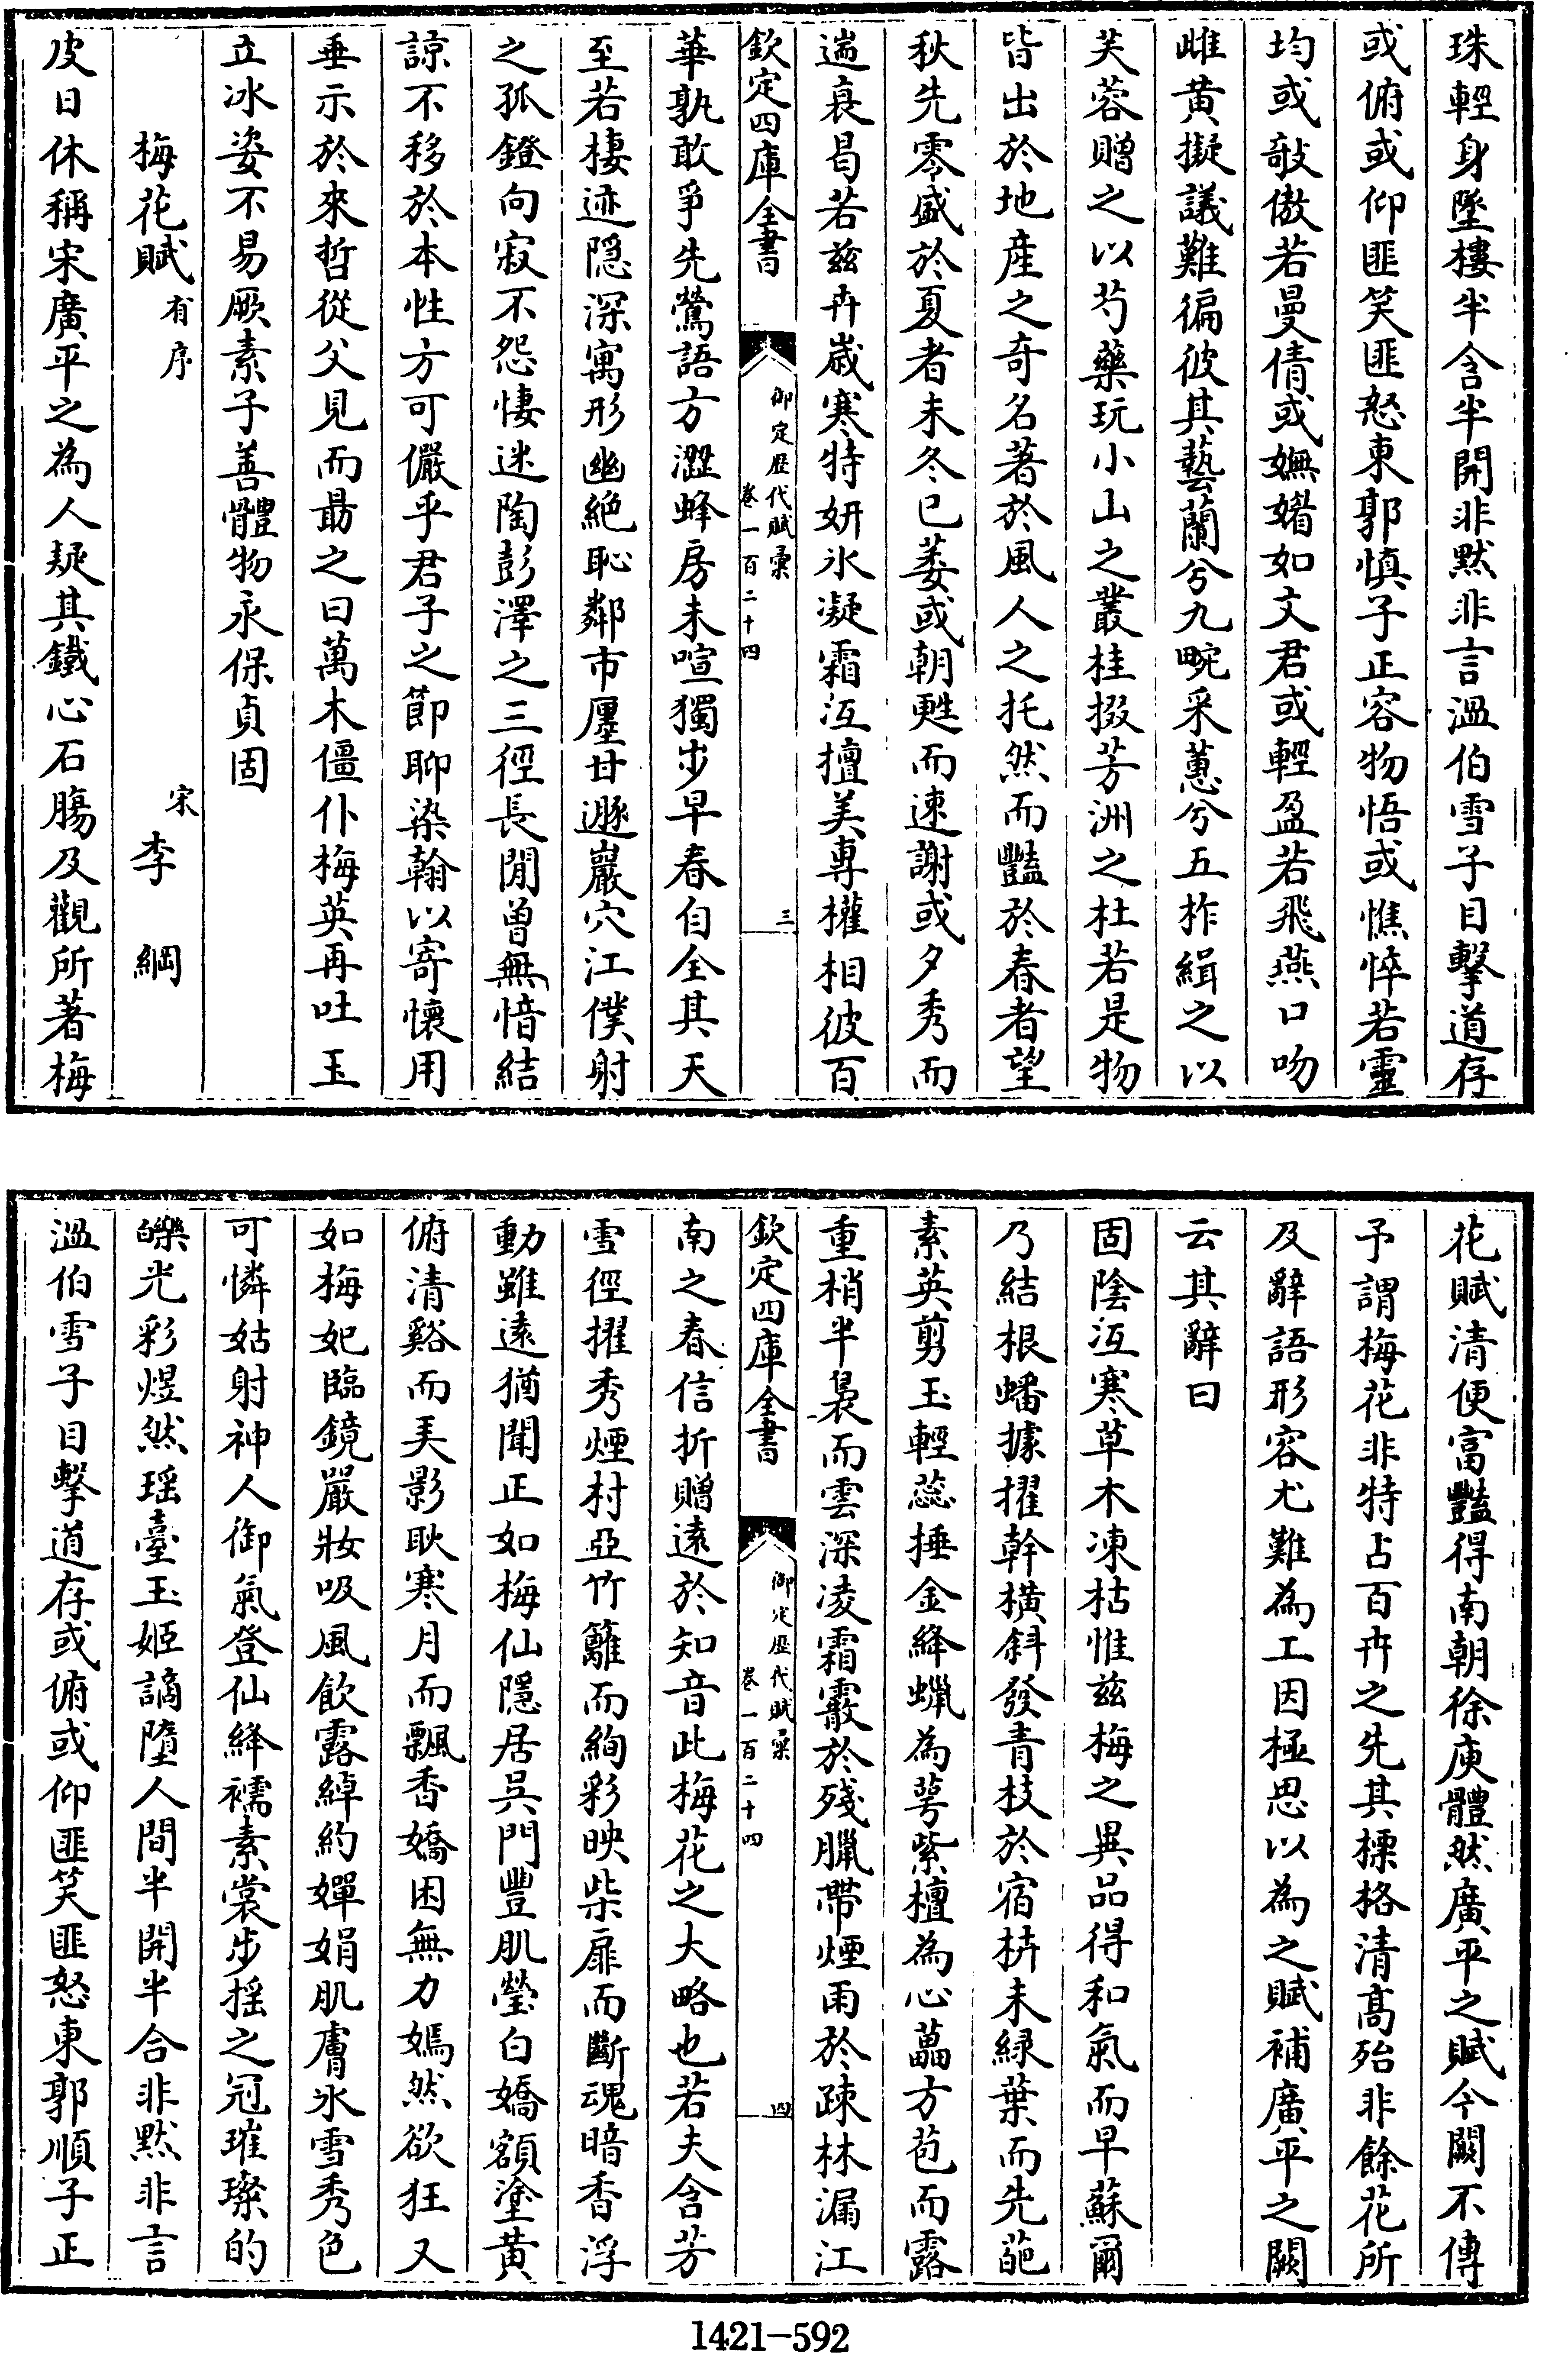 珠輕身墜樓半含半開非黙非言溫伯雪子目擊道存
或俯或仰匪笑匪怒東郭慎子正容物悟或憔悴若靈
均或敧傲若曼倩或嫵媚如文君或輕盈若飛燕口吻
雌黄擬議難徧彼其藝蘭兮九畹采蕙兮五柞緝之以
芙蓉贈之以芍藥玩小山之叢桂掇芳洲之杜若是物
皆出於地產之奇名著於風人之托然而豔於春者望
秋先零盛於夏者未冬已萎或朝甦而速謝或夕秀而
遄衰曷若兹卉歳寒特妍氷凝霜沍擅美專權相彼百
欽定四庫全書
御定歴代賦彚
卷一百二十四
三
華孰敢爭先鶯語方澀蜂房未喧獨步早春自全其天
至若棲迹隠深寓形幽絶恥鄰市廛甘遯巖穴江僕射
之孤鐙向寂不怨悽迷陶彭澤之三徑長閒曾無愔結
諒不移於本性方可儷乎君子之節聊染翰以寄懷用
垂示於來哲從父見而勗之曰萬木僵仆梅英再吐玉
立冰姿不易厥素子善體物永保貞固
梅花賦 有序
宋 李 綱
皮日休稱宋廣平之為人疑其鐵心石腸及觀所著梅
花賦清便富豔得南朝徐庾體然廣平之賦今闕不傳
予謂梅花非特占百卉之先其標格清髙殆非餘花所
及辭語形容尤難為工因極思以為之賦補廣平之闕
云其辭曰
固陰沍寒草木凍枯惟兹梅之異品得和氣而早蘇爾
乃結根蟠據擢幹橫斜發青枝於宿枿未緑葉而先葩
素英剪玉輕蕊捶金絳蠟為萼紫檀為心藟方苞而露
重梢半裊而雲深凌霜霰於殘臘帶煙雨於疎林漏江
欽定四庫全書
御定歴代賦彚
卷一百二十四
四
南之春信折贈遠於知音此梅花之大略也若夫含芳
雪徑擢秀煙村亞竹籬而絢彩映柴扉而斷魂暗香浮
動雖遠猶聞正如梅仙隠居吳門豐肌瑩白嬌額塗黄
俯清谿而美影耿寒月而飄香嬌困無力嫣然欲狂又
如梅妃臨鏡嚴妝吸風飲露綽約嬋娟肌膚氷雪秀色
可憐姑射神人御氣登仙絳襦素裳步揺之冠璀璨的
皪光彩煜然瑶臺玉姬謫墮人間半開半合非黙非言
溫伯雪子目擊道存或俯或仰匪笑匪怒東郭順子正
1421-592